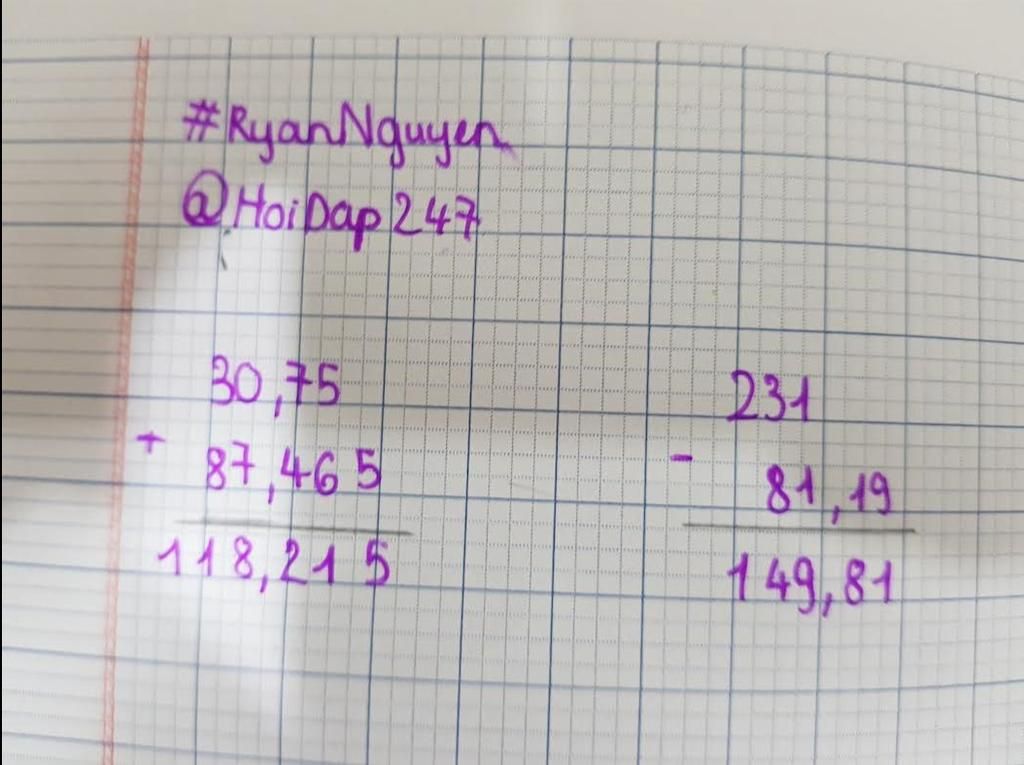 #RyanNguyen
@HoiDap247
30,75
+
87,465
118,215
231
-
81,19
149,81